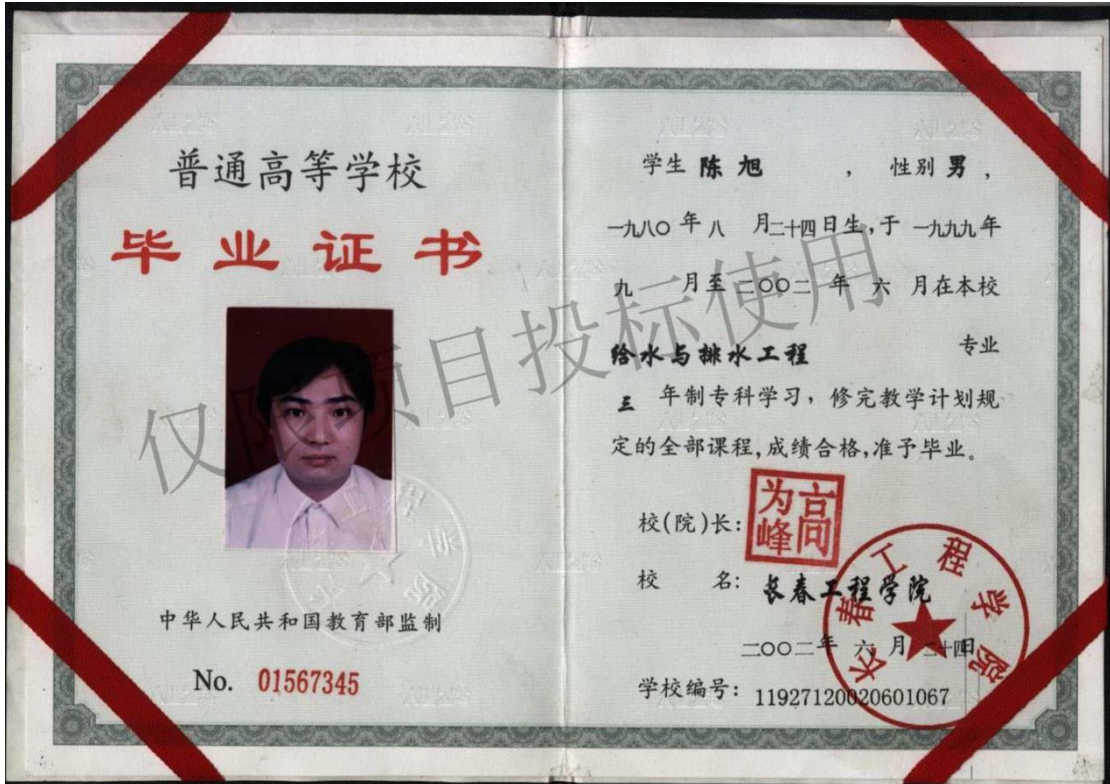 普通高等学校
毕业证书
中华人民共和国教育部监制
No. 01567345
学生 陈旭 , 性别 男 ,
一九八〇年八月二十四日生,于一九九九年
九月至二〇〇二年六月在本校
给水与排水工程 专业
三年制专科学习,修完教学计划规
定的全部课程,成绩合格,准予毕业。
校(院)长: 高为峰
校 名: 长春工程学院
二〇〇二年六月二十四日
学校编号: 11927120020601067
长春工程学院
仅限项目投标使用